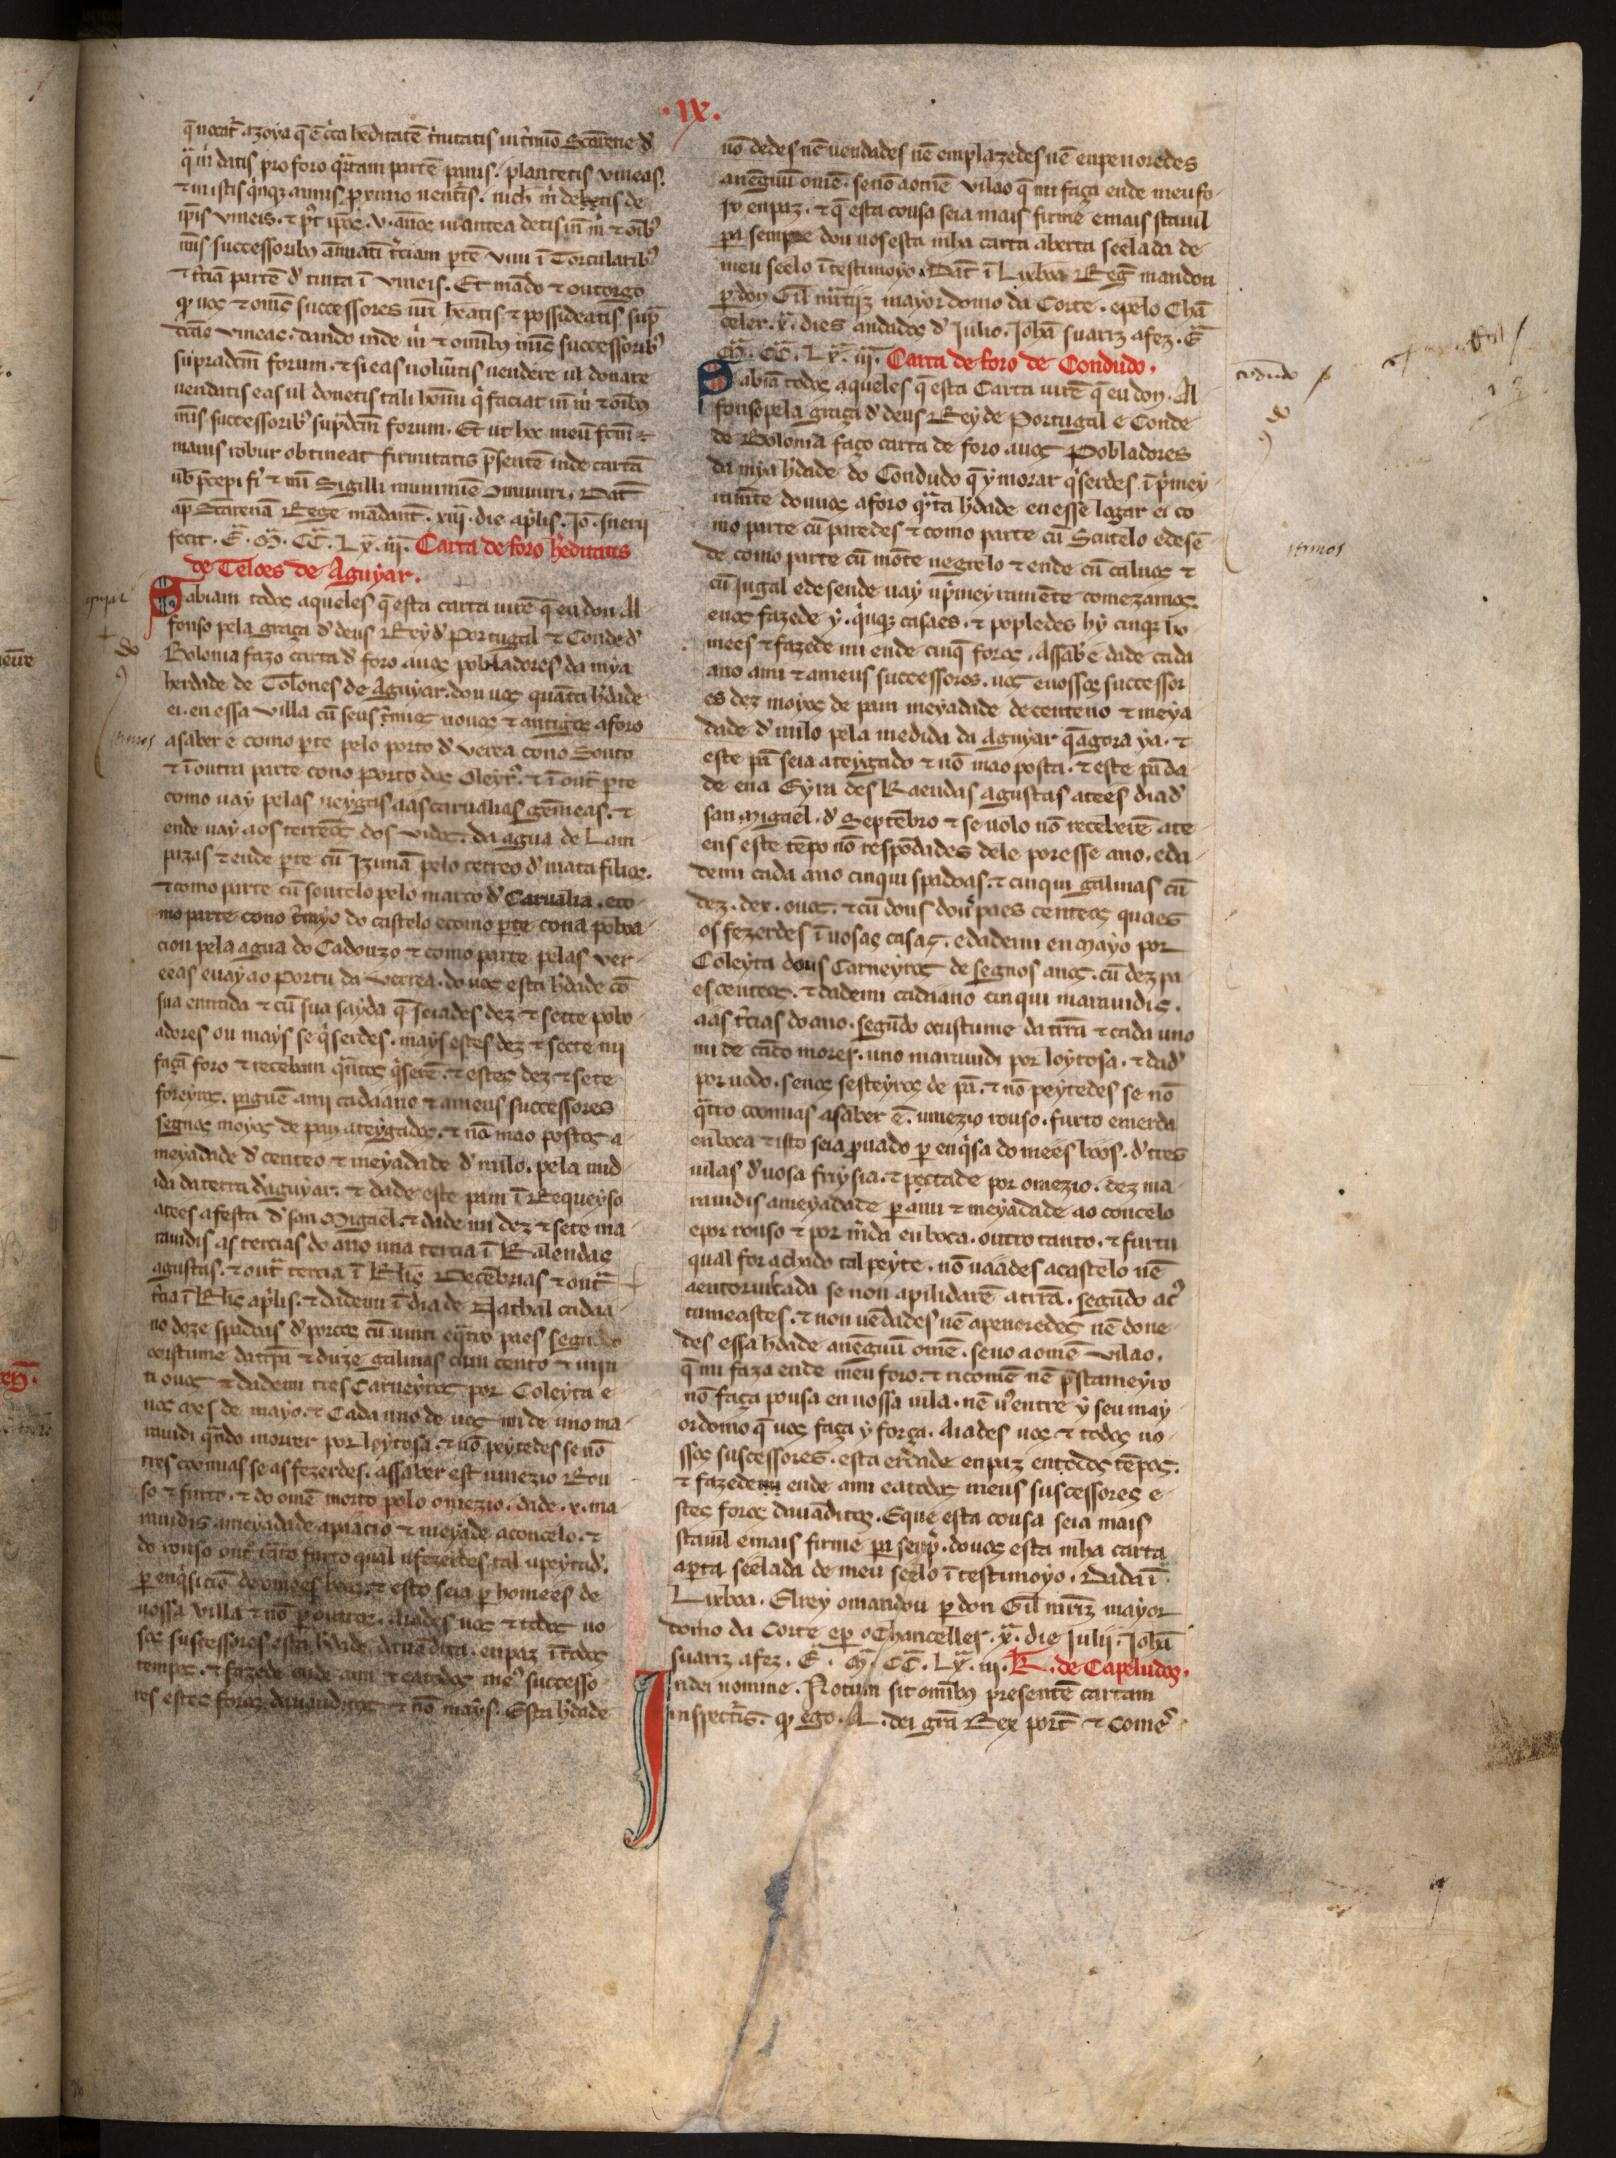 ·IX·
q̄ uocat̃ azoya q̄ ẽ c̃ca hẽditatẽ t̃nitatis in t̃minõ Scãrene d̉
q̃ m̃ datis pro foro q̃rtam partẽ panis. plantetis vineas.
⁊ in istis q̃nq̃ annis p̃ximo uent̃is. nich̃ m̃ detis de
ip̃is vineis. ⁊ p̃t ip̃os .v. ãnos in antea detis m̃ ⁊ oĩbꝫ
meis successoribꝫ ãnuatĩ t̃ciam p̃tẽ vini ĩ Torcularibꝫ
⁊ t̃ciã partẽ d̉ tinta ĩ vineis. Et mãdo ⁊ outorgo
qꝫ uos ⁊ om̃s successores ur̃i heãtis ⁊ possideatis sup̃
dc̃as vineas. dando inde m̃ ⁊ omĩbꝫ meis successoribꝫ
supradcm̃ forum. ⁊ si eas uolũitis uendere ul donare
uendatis eas ul donetis tali homĩ q̃ faciat m̃ ⁊ oĩbꝫ
meis successoribꝫ sup̃dcm̃ forum. Et ut hoc meũ fc̃m
maius robur obtineat firmitatis p̃sentẽ inde cartã
uob̃ p̃cepi fi̾ ⁊ mei Sigilli munimẽ cõmuniri. Dat̃
ap̃ Scãrenã Rege mãdant̃. xiiij. die ap̃lis. Jo. suerij
fecit. E. M. CC. Lx̃. iij. Carta de foro h̃editatis
de Teloes de Aguyar.
Sabiam todos aqueles q̃ esta carta uirẽ q̃ eu don Al
fonso pela graça d̉ deus Rey d̉ Portugal ⁊ Conde d̉
Bolonia fazo carta d̉ foro auos pobladores da mya
herdade de Tolones de Aguyar. dou uos quãta h̃dade
ei. en essa villa cũ seus t̃mios nouos ⁊ antigos aforo
asaber e como p̃te pelo porto d̉ verea cono Souto
⁊ ĩ outra parte cono porto dos Oleyr̃os. ⁊ ĩ out̃ p̃te
como uay pelas ueygas aas carualias gẽmeas. ⁊
ende uay aos terreos dos vidos. da agua de Lam
pazas ⁊ ende p̃te cũ Izunã pelo terreo d̉ mata filios.
⁊ como parte cũ soutelo pelo marco d̉ Carualia. eco
mo parte cono t̃myo do castelo ecomo p̃te cona poboa
cion pela agua do Cadouzo ⁊ como parte pelas ver
eeas euay ao Portu da verrea. do uos esta h̃dade cõ
sua entrada ⁊ cũ sua sayda q̃ seiades dez ⁊ sette pobo
adores ou mays se q̃serdes. mays estes dez ⁊ sette mi
façã foro ⁊ recebam q̃ntos q̃serẽ. ⁊ estes dez ⁊ sete
foreyros. paguẽ ami cadaano ⁊ ameus successores
segnos moyos de pan ateygados. ⁊ nõ mao postos a
meyadade d̉ centeo ⁊ meyadade d̉ milo. pela mid
ida da terra d̉aguyar. ⁊ dade este pam ĩ Requeyso
atees afesta d̉ san Migael. ⁊ dade mi dez ⁊ sete ma
rauidis as tercias do ano una tercia ĩ Kalendas
agustas. ⁊ out̃ tercia ĩ Kl̃is Decẽbrias ⁊ out̃
t̃cia ĩ Kl̃is ap̃lis. ⁊ dademi ĩ dia de Nathal cadaa
no doze spadoas d̉ porcos cũ uinti eq̃tro paes segũdo
coustume da t̃ra ⁊ duze galinas cum cento ⁊ uijn
ti ouos ⁊ dademi tres Carneyros por Coleyta e
uos mes de mayo. ⁊ Cada uno de uos mi de uno ma
rauidi q̃ndo morrer por loytosa. ⁊ nõ peytedes se nõ
tres coomias se as fezerdes. assaber est umezio Rou
so ⁊ furto. ⁊ do omẽ morto polo omezio. dade .x. ma
rauidis ameyadade apaacio ⁊ meyade aconcelo. ⁊
do rouso out̃ tãto furto qual ufezerdes tal upeytad̉.
p̃ enq̃siciõ de omees boos ⁊ esto seia p̃ homees de
uossa villa ⁊ nõ p̃ outros. Aiades uos ⁊ todos uo
sos suscessores esta h̃dade dauã dita. enpaz ĩ todos
tempos. ⁊ fazede ende ami ⁊ eatodos meꝰ successo
res estes foros dauãditos ⁊ nõ mays. Esta h̃dade
nõ dedes nẽ uendades nẽ emplazedes nẽ enpenoredes
anẽguũ omẽ. senõ aomẽ vilao q̃ mi faça ende meu fo
ro enpaz. ⁊ q̃ esta cousa seia mais firme emais stauil
p̃a sempre dou uos esta mha carta aberta seelada de
meu seelo ĩ testimoyo. Dat̃ ĩ Lixboa Reg̃ mandou
p̃ don Gil mr̃tijz mayordomo da Corte. epelo Chã
celer. x̃. dies andados d̉ Julio. Johã suariz afez. E
M. CC. Lx̃. iij. Carta de foro de Condudo.
Sabiã todos aqueles q̃ esta Carta uirẽ q̃ eu don. Al
fonso pela graça d̉ deus Rey de Portugal e Conde
de Bolonia faço carta de foro auos Pobladores
da mya h̃dade do Condudo q̃ y morar q̃serdes. ĩ p̃mey
ramẽte douuos aforo q̃nta h̃dade en esse logar ei co
mo parte cũ paredes ⁊ como parte cũ Scutelo edesẽ
de como parte cũ mõte negrelo ⁊ ende cũ caluos ⁊
cũ Jugal edesende uay up̃meyramẽte comezamos.
euos fazede y. q̃nqꝫ casaes. ⁊ popledes hy cinqꝫ ho
mees ⁊ fazede mi ende cinq̃ foros. Assab̃ e dade cada
ano ami ⁊ ameus successores. uos euossos successor
es dez moyos de pam meyadade decenteno ⁊ meya
dade d̉ milo pela medida da Aguyar q̃ agora ya. ⁊
este pã seia ateygado ⁊ nõ mao posta. ⁊ este pã da
de ena Eyra des Kaendas agustas atees dia d̉
san Migael. d̉ Septẽbro ⁊ se uolo nõ receberẽ ate
ens este tẽpo nõ respõdades dele poresse ano. eda
demi cada ano cinqui spadoas. ⁊ cinqui galinas cũ
dez. dez. ouos. ⁊ cũ dous dous paes centeos quaes
os fezerdes ĩ uosas casas. edademi en Mayo por
Coleyta dous Carneyros de segnos anos. cũ dez pa
es centeos. ⁊ dademi cadaano cinqui marauidis.
aas t̃cias do ano. segũdo custume da t̃ra ⁊ cada uno
mi de cãdo mores. uno marauidi por loytosa. ⁊ dad̉
por uodo. senos sesteyros de pã. ⁊ nõ peytedes se nõ
q̃tro coomias asaber ẽ. umezio rouso. furto emerda
enboca ⁊ isto seia p̃uado p̃ enq̃sa do mees boos. d̉ tres
uilas d̉ uosa frijsia. ⁊ pectade por omezio. dez ma
rauidis ameyadade p̃ ami ⁊ meyadade ao concelo
epor rouso ⁊ por m̃da enboca. outro tanto. ⁊ furtu
qual for achado tal peyte. nõ uaades acastelo nẽ
aentoruiscada se non apilidarẽ at̃rã. segũdo acꝰ
tumeastes. ⁊ non uẽdades nẽ apenoredes nẽ done
des essa h̃dade anẽguũ omẽ. seno aomẽ vilao.
q̃ mi faza ende meu foro. ⁊ ricomẽ nẽ p̃stameyro
nõ faça pousa en uossa uila. nẽ uꝰ entre y seu may
ordomo q̃ uos faça y força. Aiades uos ⁊ todos uo
ssos suscessores. esta erdade enpaz entodos tẽpos.
⁊ fazedemi ende ami eatodos meus suscessores e
stes foros dauãditos. Eque esta cousa seia mais
stauil emais firme p̃a semp̃. douos esta mha carta
ap̃ta seelada de meu seelo ĩ testimoyo. Dada ĩ
Lixboa. Elrey omandou p̃ don Gil mr̃tz mayor
domo da Corte ep̃ oChanceller. x̃. die Julii. Johã
suariz afez. E. M. CC. Lx̃. iij. K. de Capeludos.
In dei nomine. Notum sit omĩbꝫ presentẽ cartam
inspectur̃is. qꝫ ego. A. dei gr̃a Rex port̃ ⁊ Comẽs
cõdudo